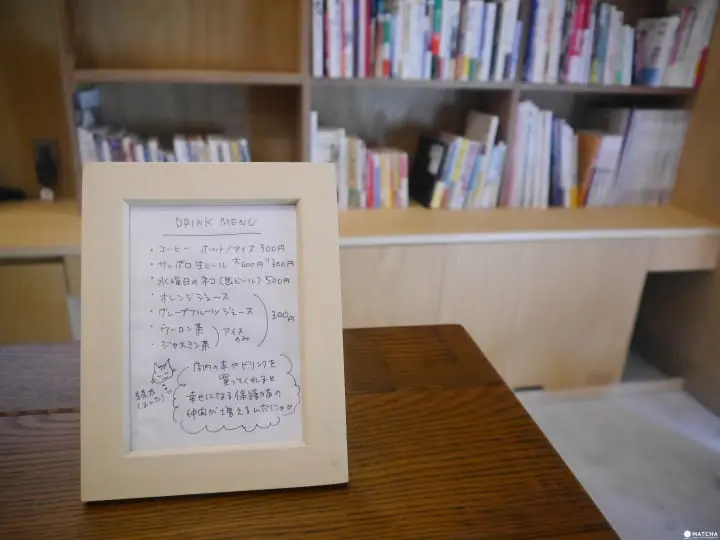 DRINK MENU
・コーヒー ホット/アイス 300円
・サッポロ生ビール 大600円 小300円
・水曜日のネコ(缶ビール) 500円
・オレンジジュース
・グレープフルーツジュース
300円
・ウーロン茶
・ジャスミン茶
アイスのみ
店内の本やドリンクを
買ってくれると
幸せになる保護猫の
仲間が増えるんだにゃ
MATCHA